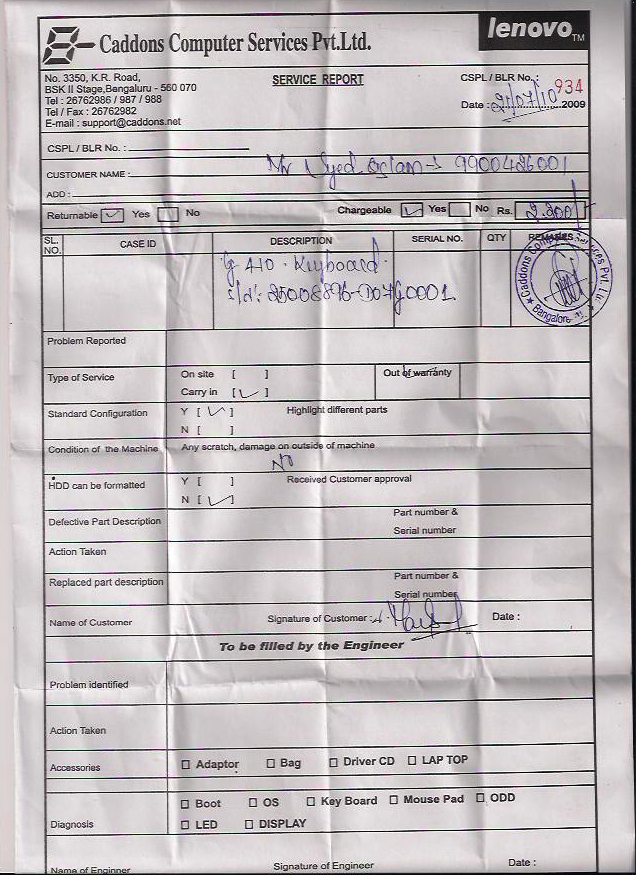 Caddons Computer Services Pvt.Ltd.
lenovo TM
No. 3350, K.R. Road,
BSK II Stage,Bengaluru - 560 070
Tel : 26762986 / 987 / 988
Tel / Fax : 26762982
E-mail : support@caddons.net
SERVICE REPORT
CSPL / BLR No. : 934
Date : 21/07/10 2009
CSPL / BLR No. :
CUSTOMER NAME : Mr Syed 9900426001
ADD :
Returnable Yes No Chargeable Yes No Rs. 2.200/
SL. NO. CASE ID DESCRIPTION SERIAL NO. QTY REMARKS
G 410 . Keyboard.
S/N: 25008896-D07G0001.
Caddons Computer Services Pvt. Ltd. Bangalore
Problem Reported
Type of Service On site [ ] Out of warranty
Carry in [ ✓ ]
Standard Configuration Y [ ✓ ] Highlight different parts
N [ ]
Condition of the Machine Any scratch, damage on outside of machine
NO
HDD can be formatted Y [ ] Received Customer approval
N [ ✓ ]
Defective Part Description Part number &
Serial number
Action Taken
Replaced part description Part number &
Serial number
Name of Customer Signature of Customer : Date :
To be filled by the Engineer
Problem identified
Action Taken
Accessories Adaptor Bag Driver CD LAP TOP
Boot OS Key Board Mouse Pad ODD
Diagnosis LED DISPLAY
Name of Enginner Signature of Engineer Date :